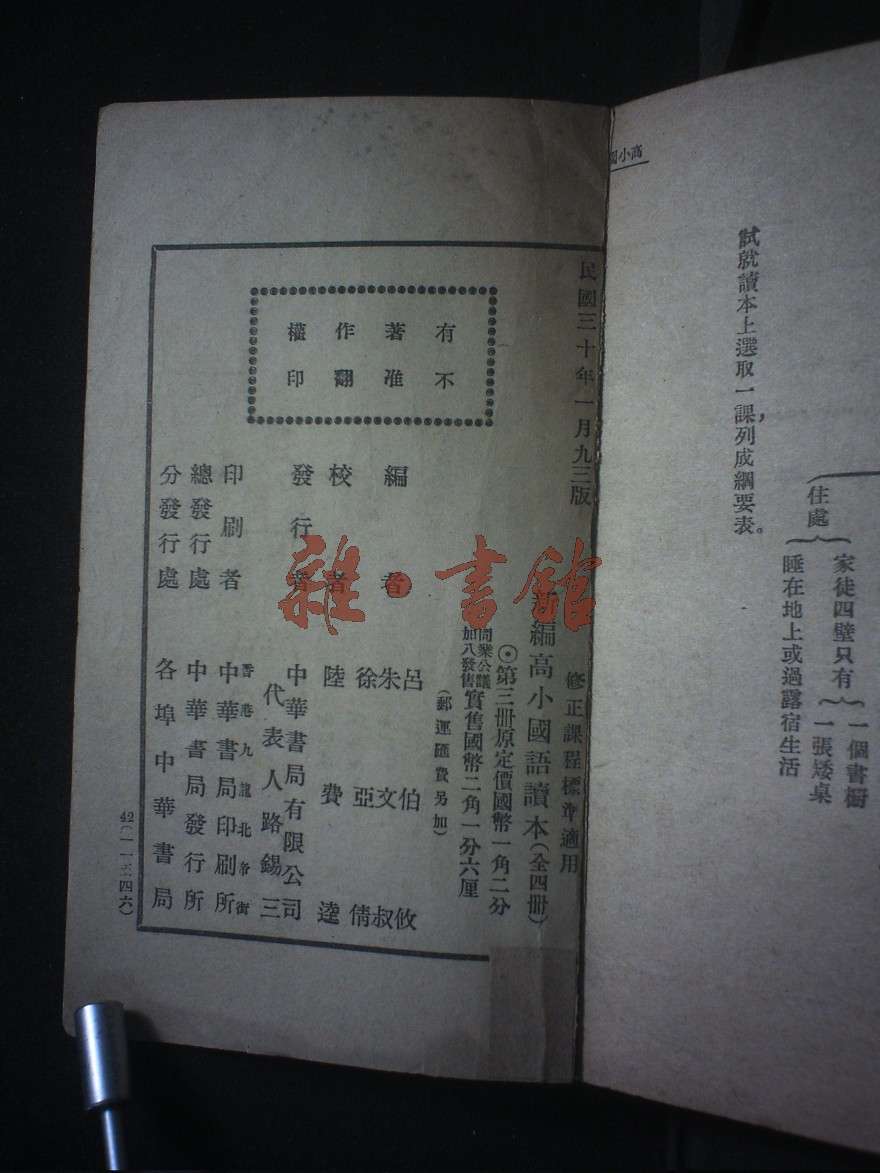 高小國
住處
家徒四壁只有
一個書櫥
一張矮桌
睡在地上或過露宿生活
試就讀本上選取一課，列成綱要表。
民國三十年一月九三版
有著作權
不准翻印
修正課程標準適用
新編高小國語讀本(全四冊)
◉第三冊原定價國幣一角二分
同業公議
加八發售
實售國幣二角一分六厘
(郵運匯費另加)
編者
呂伯攸
朱文叔
徐亞倩
校者
陸費逵
發行者
中華書局有限公司
代表人路錫三
印刷者
香港九龍北帝街
中華書局印刷所
總發行處
中華書局發行所
分發行處
各埠中華書局
雜·書館